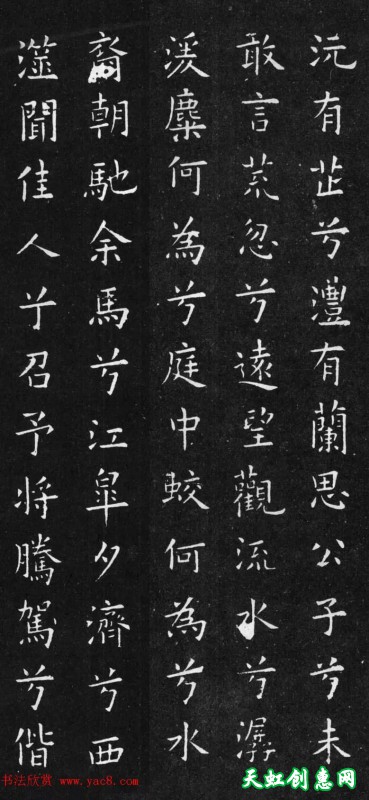 沅有芷兮澧有蘭思公子兮未
敢言荒忽兮遠望觀流水兮潺
湲麋何為兮庭中蛟何為兮水
裔朝馳余馬兮江皋夕濟兮西
澨聞佳人兮召予將騰駕兮偕
书法欣赏 www.yac8.com
天虹创惠网